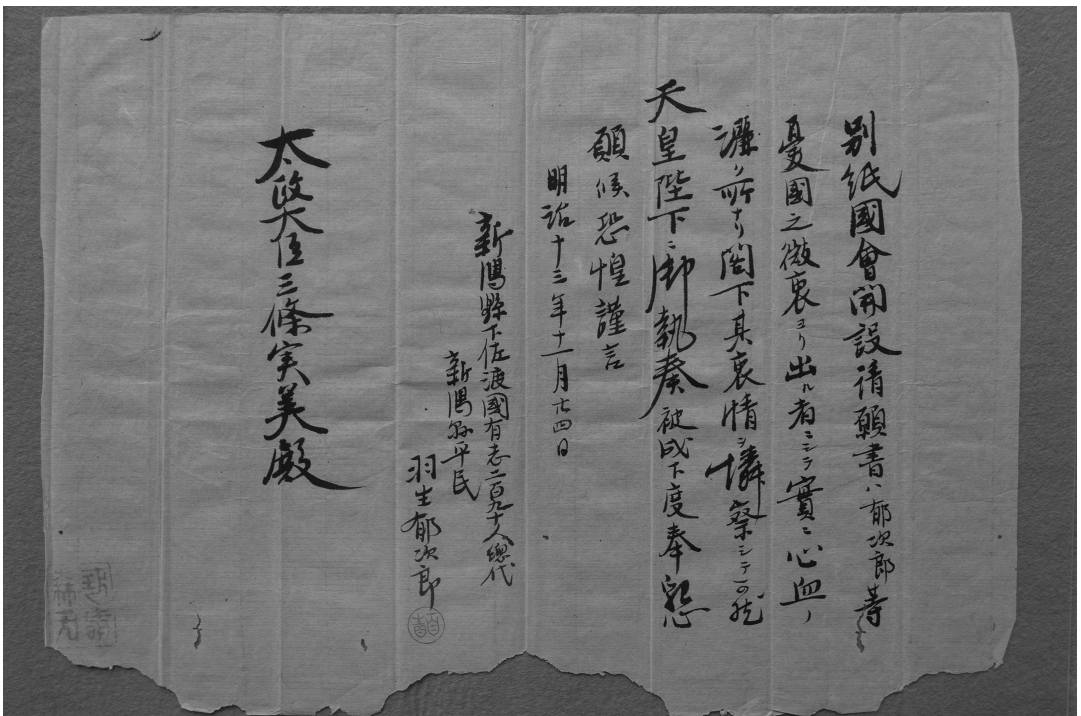 別紙國會開設請願書ハ郁次郎等
憂國之微衷ヨリ出ル者ニシテ實ニ心血ノ
灑ク所ナリ閣下其衷情ヲ憐察シテ可然
天皇陛下ニ御執奏被成下度奉懇
願候恐惶謹言
明治十三年十一月廿四日
新潟縣下佐渡國有志二百九十人總代
新潟縣平民
羽生郁次郎
太政大臣三條実美殿